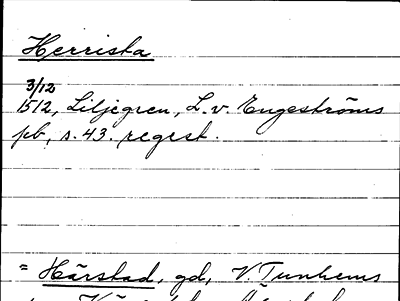 Herrista
3/12
1512, Liljegren, L. v. Engeströms
pb, s. 43. regest.
= Härstad, gd, V. Tunhems